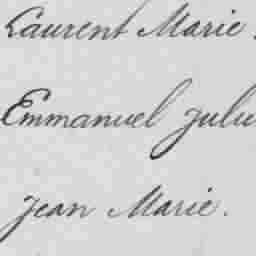 Laurent Marie.
Emmanuel Julu
Jean Marie.